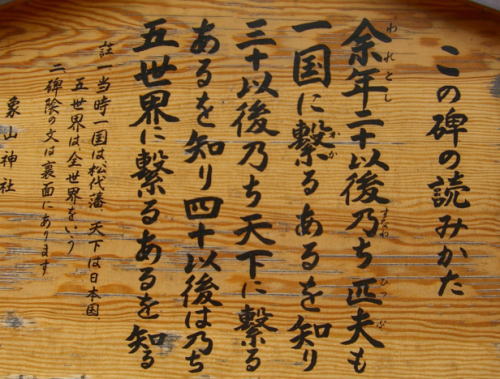 この碑の読みかた
われとし すなわ ひっぷ
余年二十以後乃ち匹夫も
かか
一国に繋るあるを知り
三十以後乃ち天下に繋る
あるを知り四十以後は乃ち
五世界に繋るあるを知る
註一当時一国は松代藩、天下は日本国
五世界は全世界をいう
二碑陰の文は裏面にあります
象山神社